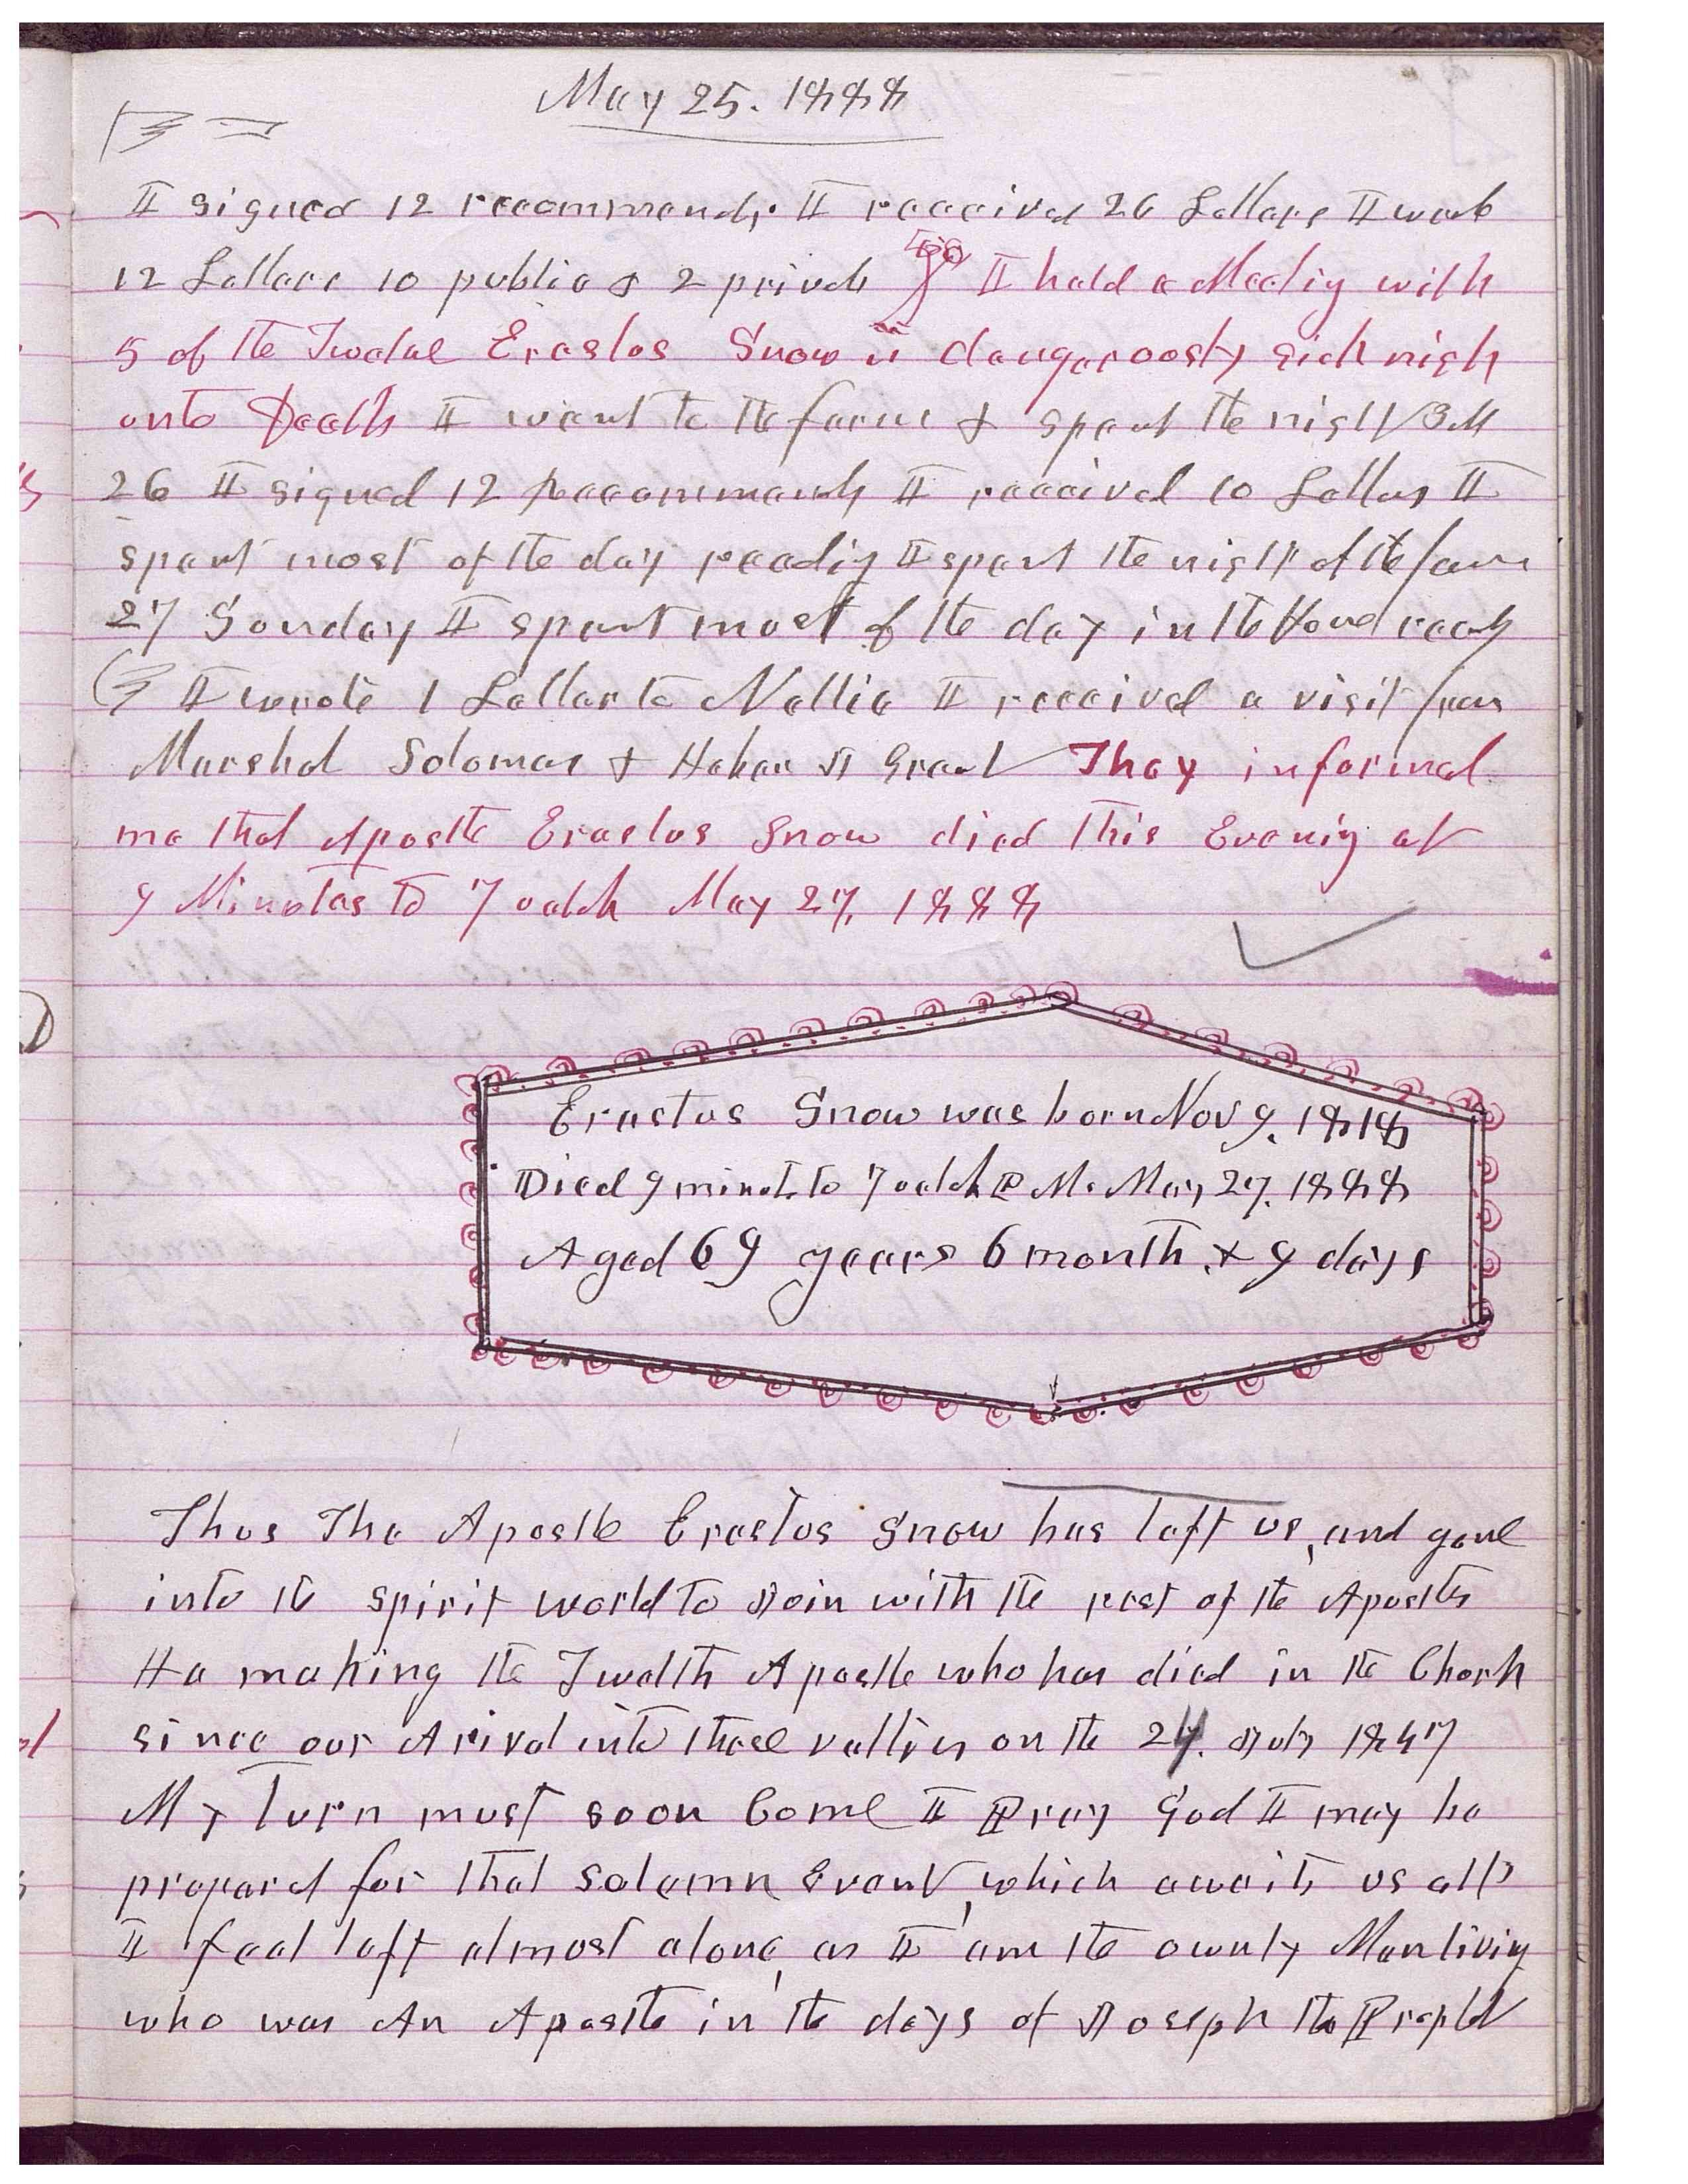 May 25. 1888
I signed 12 recommends. I received 26 Letters I wrote
12 Letters 10 public & 2 private I held a Meeting with
5 of the Twelve Erastus Snow is dangerously sick nigh
unto Death I went to the farm & spent the night 3 M
26 I signed 12 Recommends I received 10 Letters I
spent most of the day reading I spent the night at the farm
27 Sunday I spent most of the day in the House reading
I wrote 1 Letter to Nellie I received a visit from
Marshal Soloman & Heber J Grant They informed
me that Apostle Erastus Snow died this Evening at
9 Minutes to 7 oclok May 27, 1888
Erastus Snow was born Nov 9. 1818
Died 9 minuts to 7 oclok P M. May 27. 1888
Aged 69 years 6 month & 9 days
Thus The Apostle Erastus Snow has left us, and gone
into the spirit world to Join with the rest of the Apostles
He making the Twelth Apostle who has died in the Church
since our Arival into these vallies on the 24. July 1847
My Turn must soon Come I Pray God I may be
prepared for that Solemn Event, which awaits us all
I feel left almost alone, as I am the ownly Man living
who was An Apostle in the days of Joseph the Prophet